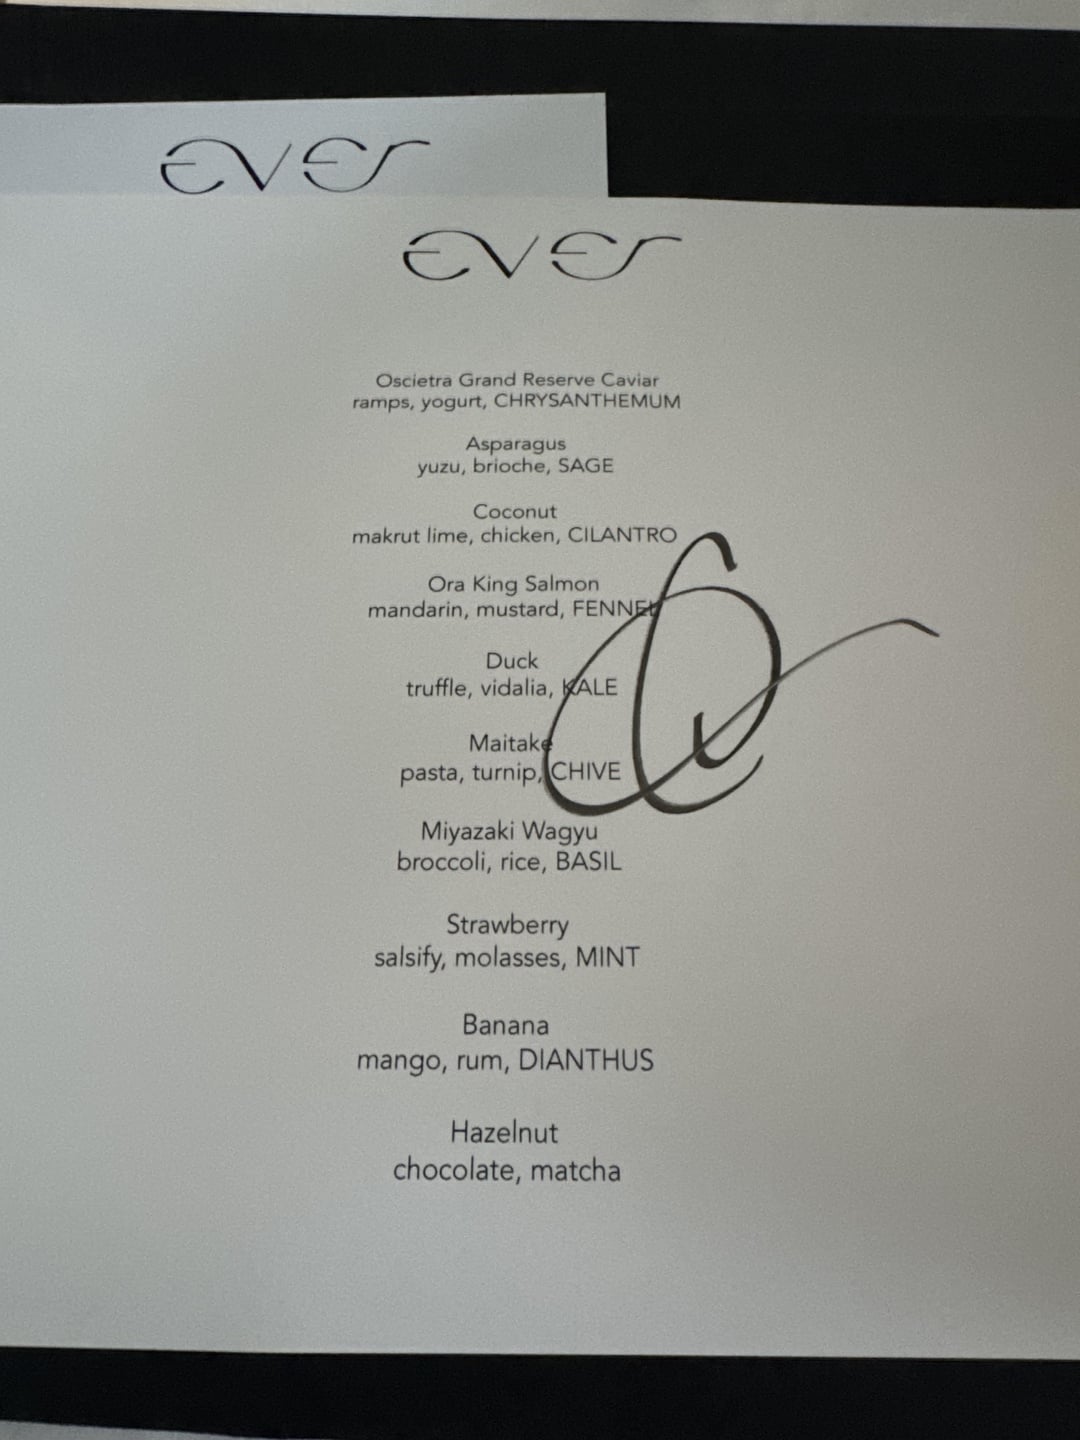 ever
ever
Oscietra Grand Reserve Caviar
ramps, yogurt, CHRYSANTHEMUM
Asparagus
yuzu, brioche, SAGE
Coconut
makrut lime, chicken, CILANTRO
Ora King Salmon
mandarin, mustard, FENNEL
Duck
truffle, vidalia, KALE
Maitake
pasta, turnip, CHIVE
Miyazaki Wagyu
broccoli, rice, BASIL
Strawberry
salsify, molasses, MINT
Banana
mango, rum, DIANTHUS
Hazelnut
chocolate, matcha